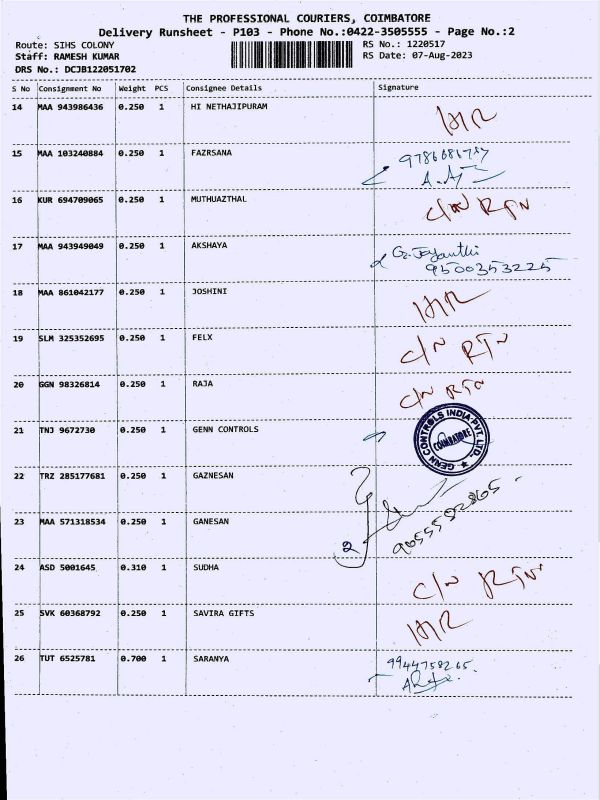 THE PROFESSIONAL COURIERS, COIMBATORE
Delivery Runsheet - P103 - Phone No.:0422-3505555 - Page No.:2
Route: SIHS COLONY RS No.: 1220517
Staff: RAMESH KUMAR RS Date: 07-Aug-2023
DRS No.: DCJB122051702
S No Consignment No Weight PCS Consignee Details Signature
14 MAA 943986436 0.250 1 HI NETHAJIPURAM
15 MAA 103240884 0.250 1 FAZRSANA
16 KUR 694709065 0.250 1 MUTHUAZTHAL C/N RTN
17 MAA 943949049 0.250 1 AKSHAYA G. Jayanthi
9500353225
18 MAA 861042177 0.250 1 JOSHINI
19 SLM 325352695 0.250 1 FELX C/N RTN
20 GGN 98326814 0.250 1 RAJA C/N RTN
21 TNJ 9672730 0.250 1 GENN CONTROLS GENN CONTROLS INDIA PVT. LTD. COIMBATORE
22 TRZ 285177681 0.250 1 GAZNESAN
23 MAA 571318534 0.250 1 GANESAN 2
24 ASD 5001645 0.310 1 SUDHA C/N RTN
25 SVK 60368792 0.250 1 SAVIRA GIFTS
26 TUT 6525781 0.700 1 SARANYA 9944758265